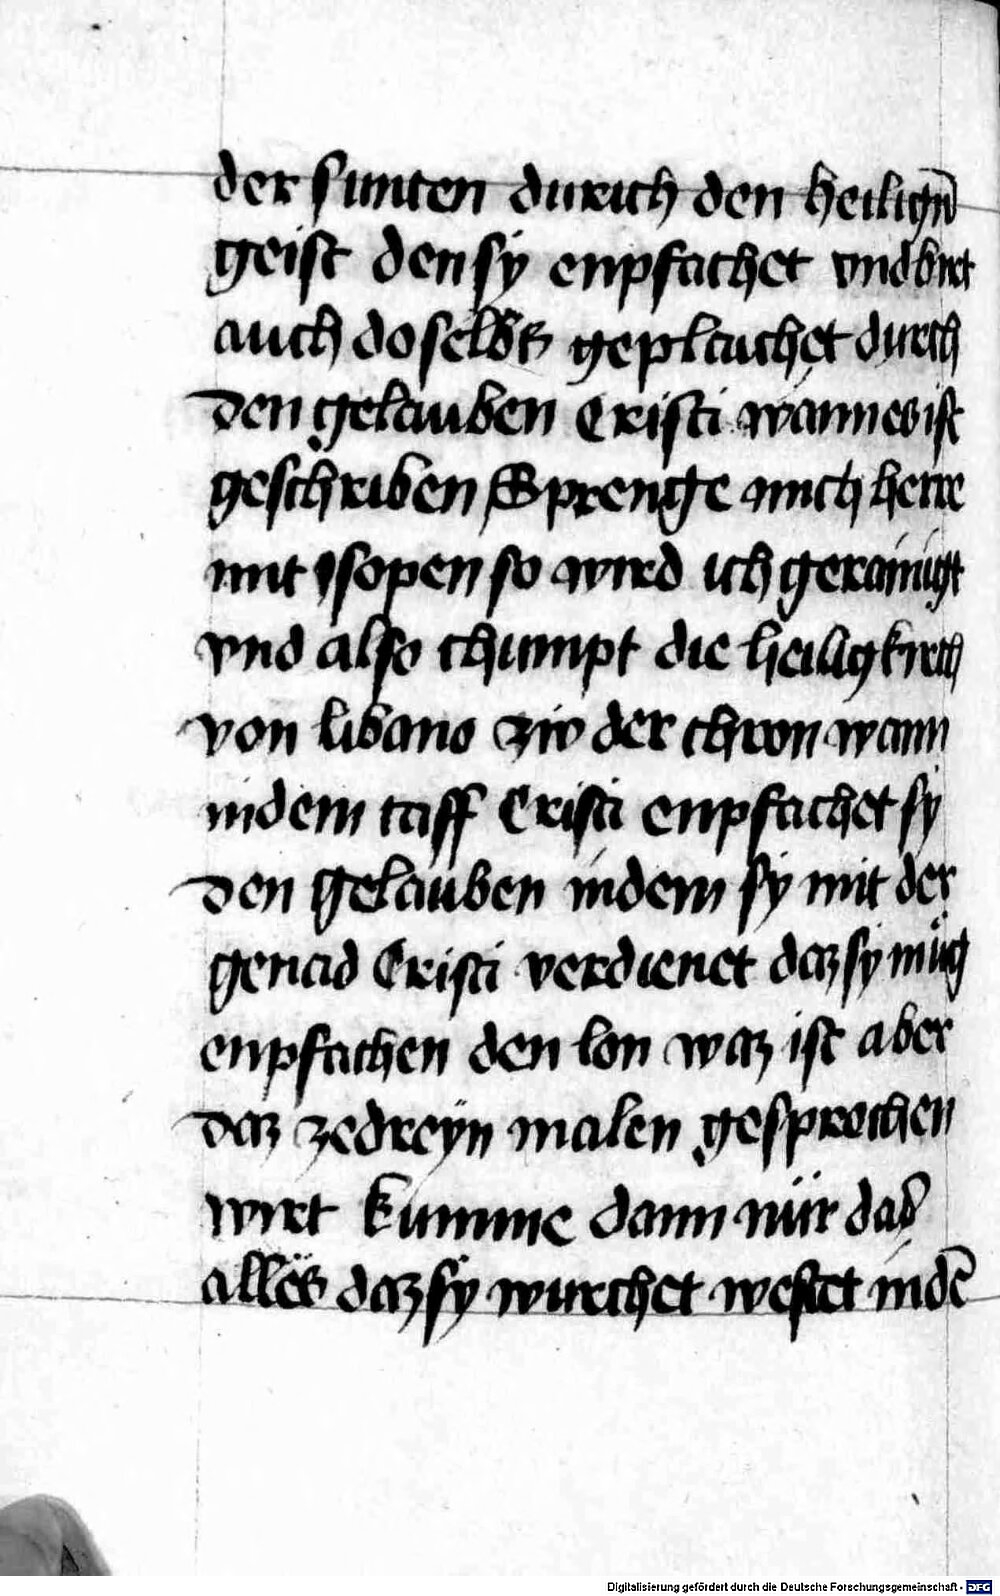 der sunten durich den heiligñ
geist den sy enpfachet vnd birt
auch doselbs geplaichet durch
den gelauben Cristi wann es ist
geschriben Sprenge mich herre
mit ysopen so wird ich gerainigt
vnd also chumpt die heilig kirch
von libano zw der chron wann
in dem tauff Cristi enpfachet sy
den gelauben in dem sy mit der
genad Cristi verdienet daz sy müg
enpfachen den lon waz ist aber
daz ze dreyn malen gesprochen
wirt kumme dann nür daz
alles daz sy wurchet westet in dē
Digitalisierung gefördert durch die Deutsche Forschungsgemeinschaft - DFG